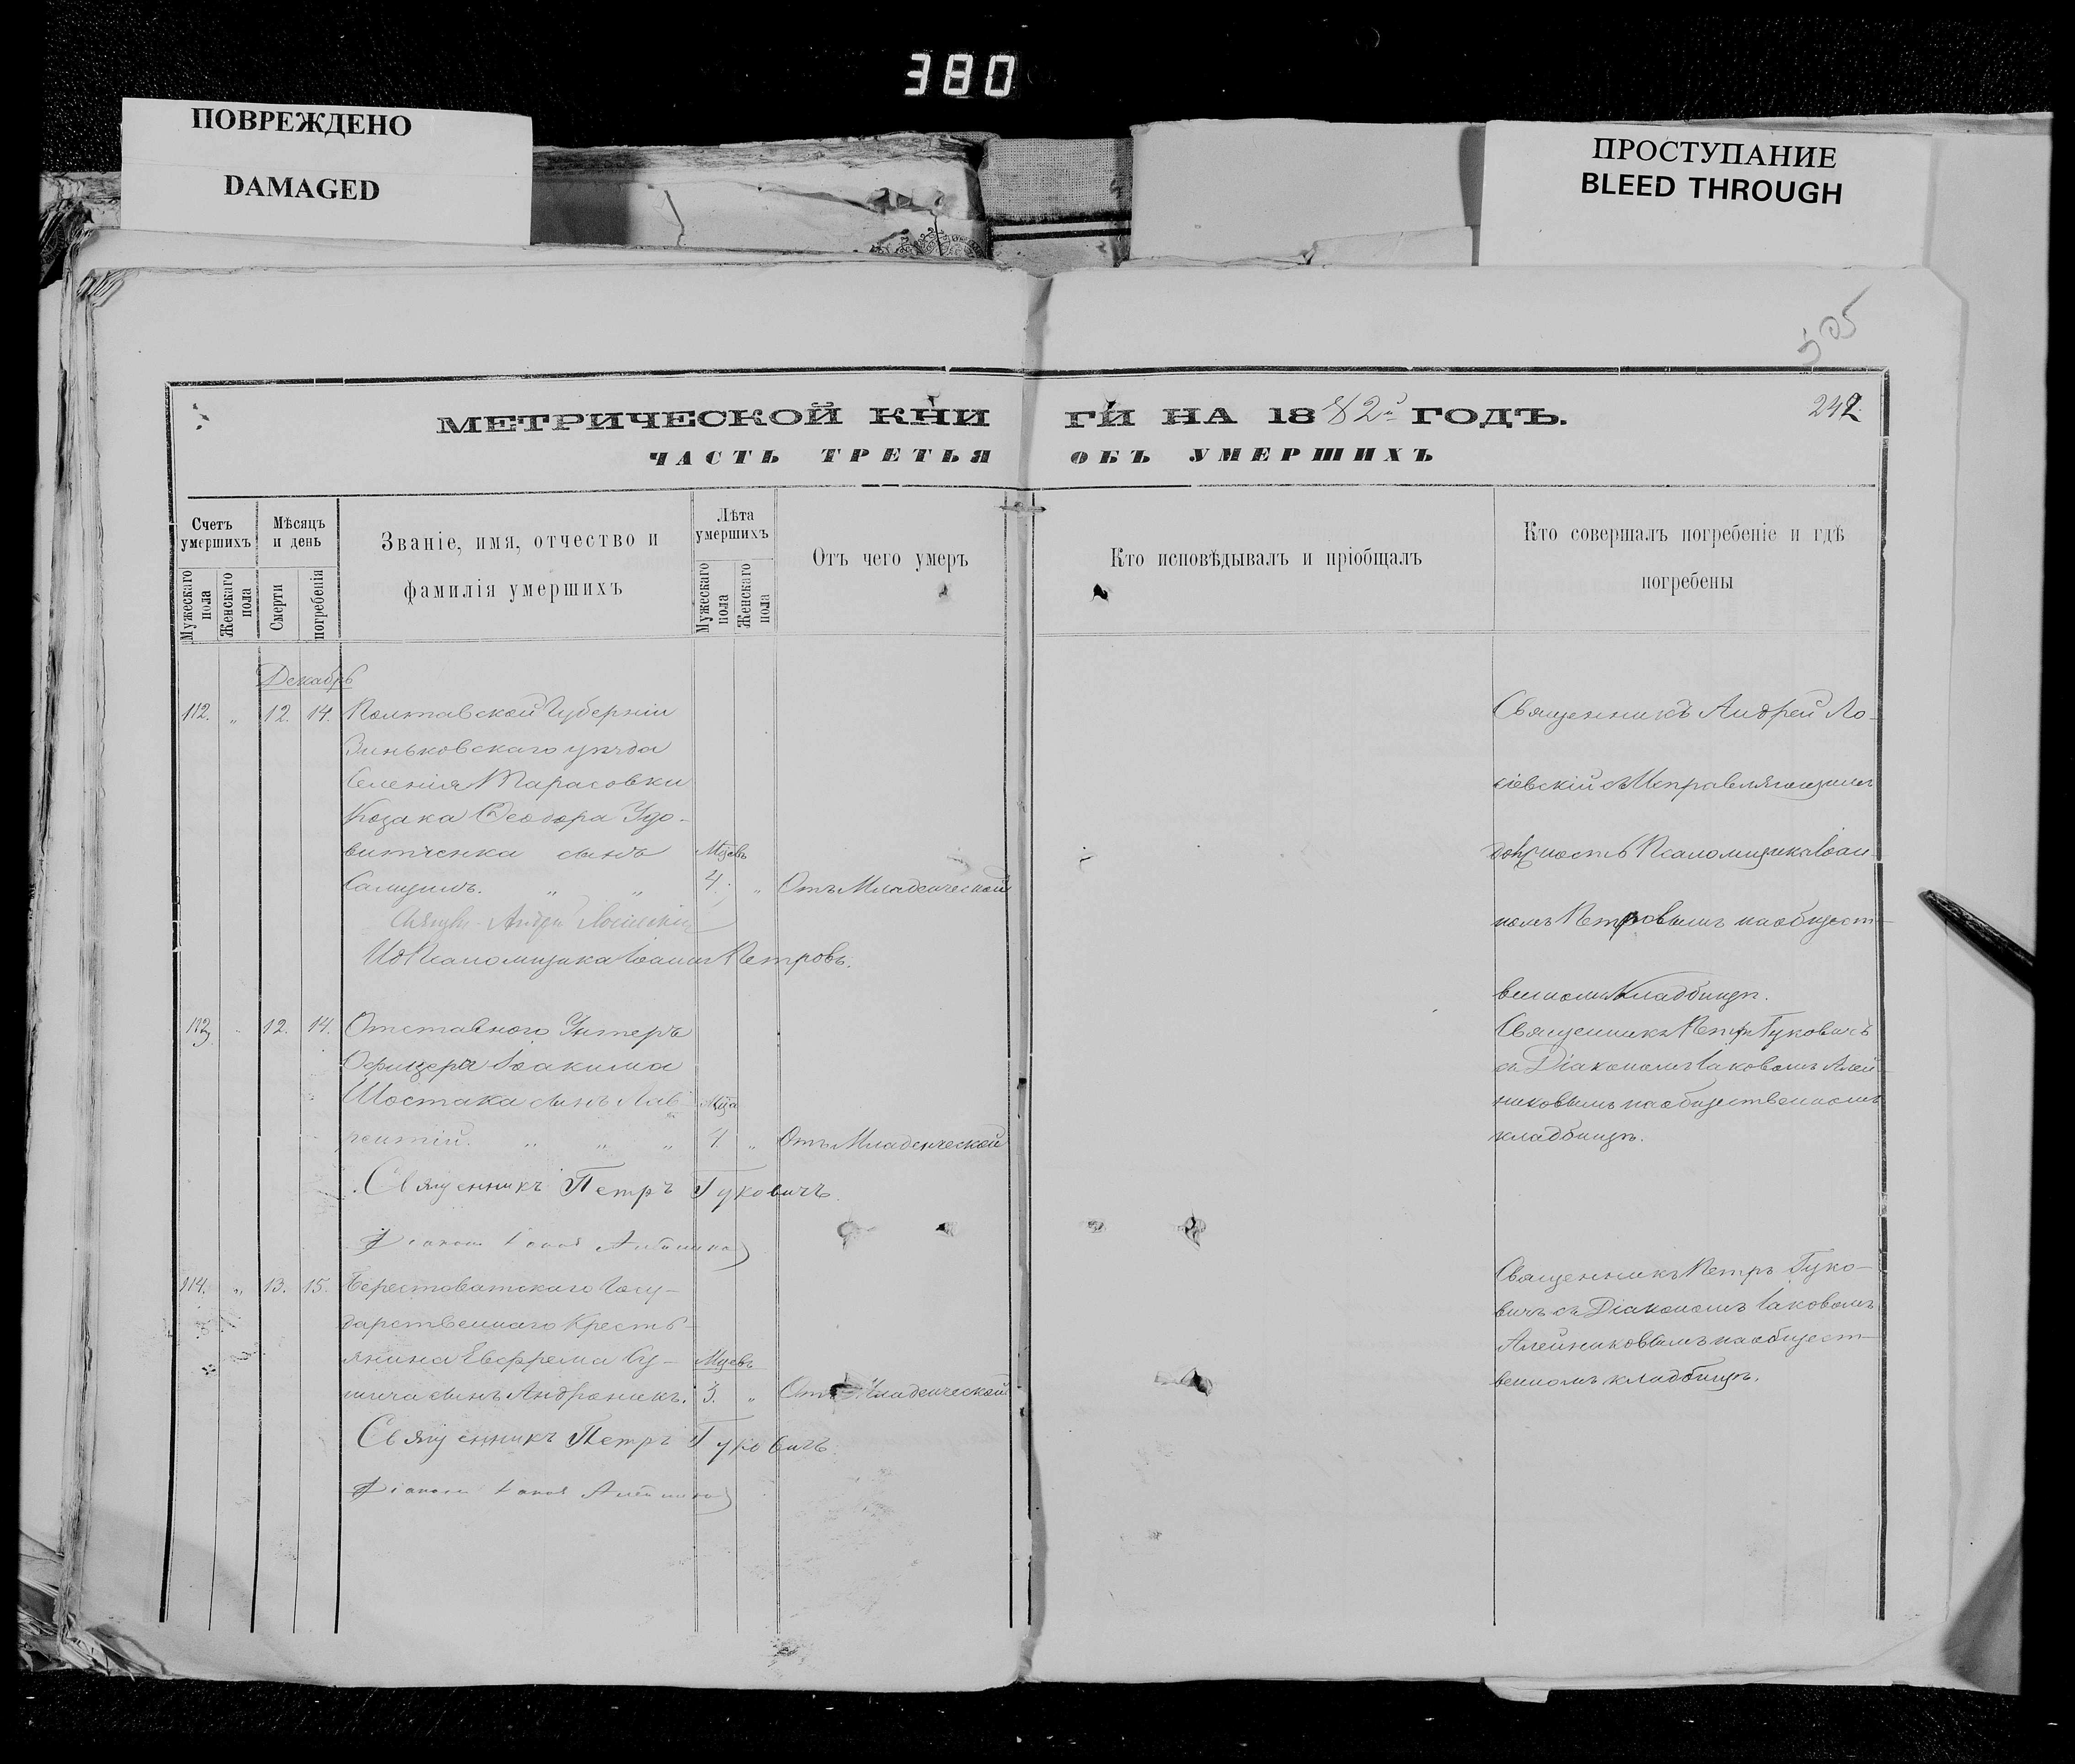 380
ПОВРЕЖДЕНО
DAMAGED
ПРОСТУПАНИЕ
BLEED THROUGH
505
МЕТРИЧЕСКОЙ КНИГИ НА 1882й ГОДЪ.
242.
ЧАСТЬ ТРЕТЬЯ ОБЪ УМЕРШИХЪ
Счетъ умершихъ
Мужескаго пола
Женскаго пола
Мѣсяцъ и день
Смерти
погребенія
Званіе, имя, отчество и
фамилія умершихъ
Лѣта умершихъ
Мужескаго пола
Женскаго пола
Отъ чего умеръ
Кто исповѣдывалъ и пріобщалъ
Кто совершалъ погребеніе и гдѣ
погребены
Декабрь
112. „ 12. 14. Полтавской Губерніи
Зиньковскаго уѣзда
Селенія Тарасовки
Козака Ѳеодора Удо-
витченка сынъ Мцевъ
4. „ Отъ Младенческой
Андрей
И д Псаломщика Іоаннъ Петровъ.
Священникъ Андрей Ло-
сіевскій съ Исправляющимъ
должность Псаломщика Іоан-
номъ Петровымъ на общест-
венномъ Кладбищѣ.
113. „ 12. 14. Отставного Унтеръ
Офицера Іоакима
Шостака сынъ Лав- Мца
рентій. „ „ „ 1. „ Отъ Младенческой
Священникъ Петръ Гуковичъ
Діаконъ Іаковъ Алейниковъ
Священникъ Петръ Гуковичъ
съ Діакономъ Іаковомъ Алей-
никовымъ на общественномъ
кладбищѣ.
114. „ 13. 15. Берестоватскаго Госу-
дарственнаго Кресть-
янина Евфрема Су- Мцевъ
сынъ Андроникъ. 3. „ Отъ Младенческой
Священникъ Петръ Гуковичъ
Діаконъ Іаковъ Алейниковъ
Священникъ Петръ Гуко-
вичъ съ Діакономъ Іаковомъ
Алейниковымъ на общест-
венномъ кладбищѣ.